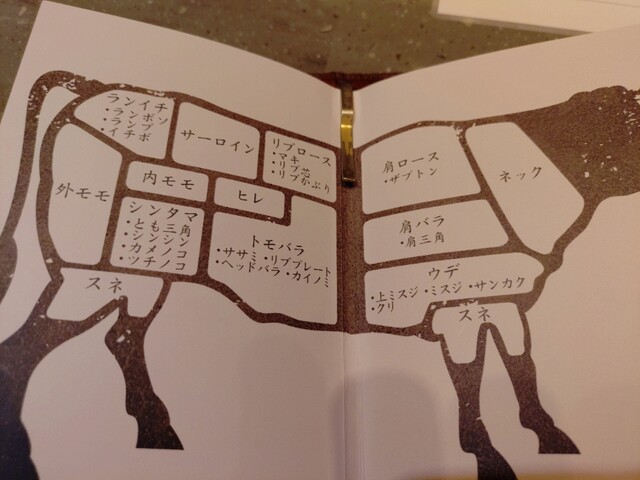 ランイチ
・ランボソ
・ランプ
・イチボ
サーロイン
リブロース
・マキ
・リブ芯
・リブかぶり
外モモ
内モモ
ヒレ
シンタマ
・とも三角
・シンシン
・カメノコ
・ツチノコ
トモバラ
・ササミ・リブプレート
・ヘッドバラ・カイノミ
スネ
肩ロース
・ザブトン
ネック
肩バラ
・肩三角
ウデ
・上ミスジ・ミスジ・サンカク
・クリ
スネ